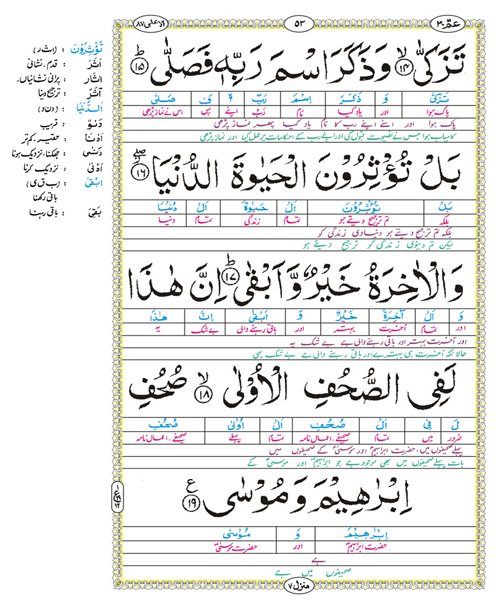 الاعلی ٨٧
٥٣
عمّ ٣٠
تَزَكّٰىۙ ﴿١٤﴾ وَذَكَرَ اسْمَ رَبِّهٖ فَصَلّٰىؕ ﴿١٥﴾
تَزَكّٰى وَ ذَكَرَ اِسْمَ رَبِّ هٖ فَ صَلّٰى
پاک ہوا اور یاد کیا نام رب اپنے پس اس نے نماز پڑھی
پاک ہوا اور اپنے رب کا نام یاد کیا پھر نماز پڑھی
بَلْ تُؤْثِرُوْنَ الْحَيٰوةَ الدُّنْيَا ﴿١٦﴾
بَلْ تُؤْثِرُوْنَ اَلْ حَيٰوةَ اَلْ دُنْيَا
بلکہ تم ترجیح دیتے ہو تمام زندگی تمام دنیا
بلکہ تم ترجیح دیتے ہو دنیاوی زندگی کو
لیکن تم دنیوی زندگی کو ترجیح دیتے ہو
وَالْاٰخِرَةُ خَيْرٌ وَّاَبْقٰىؕ ﴿١٧﴾ اِنَّ هٰذَا
وَ اَلْ اٰخِرَةُ خَيْرٌ وَ اَبْقٰى اِنَّ هٰذَا
اور تمام آخرت بہتر اور باقی رہنے والی بے شک یہ
اور آخرت بہتر اور باقی رہنے والی ہے بے شک یہ
حالانکہ آخرت ہی بہتر ہے اور باقی رہنے والی ہے بے شک یہی
لَفِى الصُّحُفِ الْاُوْلٰىۙ ﴿١٨﴾ صُحُفِ
لَ فِى اَلْ صُحُفِ اَلْ اُوْلٰى صُحُفِ
ضرور میں تمام صحیفے، اعمال نامہ تمام پہلے صحیفے، اعمال نامہ
پہلے صحیفوں میں، حضرت ابراہیمؑ اور موسیٰؑ کے
بات پہلے صحیفوں میں بھی موجود ہے جو ابراہیمؑ اور موسیٰؑ کے
اِبْرٰهِيْمَ وَمُوْسٰى ﴿١٩﴾ ع
اِبْرٰهِيْمَ وَ مُوْسٰى
حضرت ابراہیمؑ اور حضرت موسیٰؑ
ہے
صحیفوں میں ہے
منزل ٧
تُؤْثِرُوْنَ : (اثر)
اَثَرَ : قدم، نشانی
اٰثَار : پرانی نشانیاں،
اٰثَرَ : ترجیح دینا
اَلدُّنْيَا : (دنو)
دُنُوّ : قریب
اَدْنَا : حقیر، کم تر
دَنٰى : جھکنا، نزدیک ہونا
اَدْنٰى : نزدیک کرنا
اَبْقٰى : (ب ق ی)
باقی رکھنا
بَقِىَ : باقی رہنا